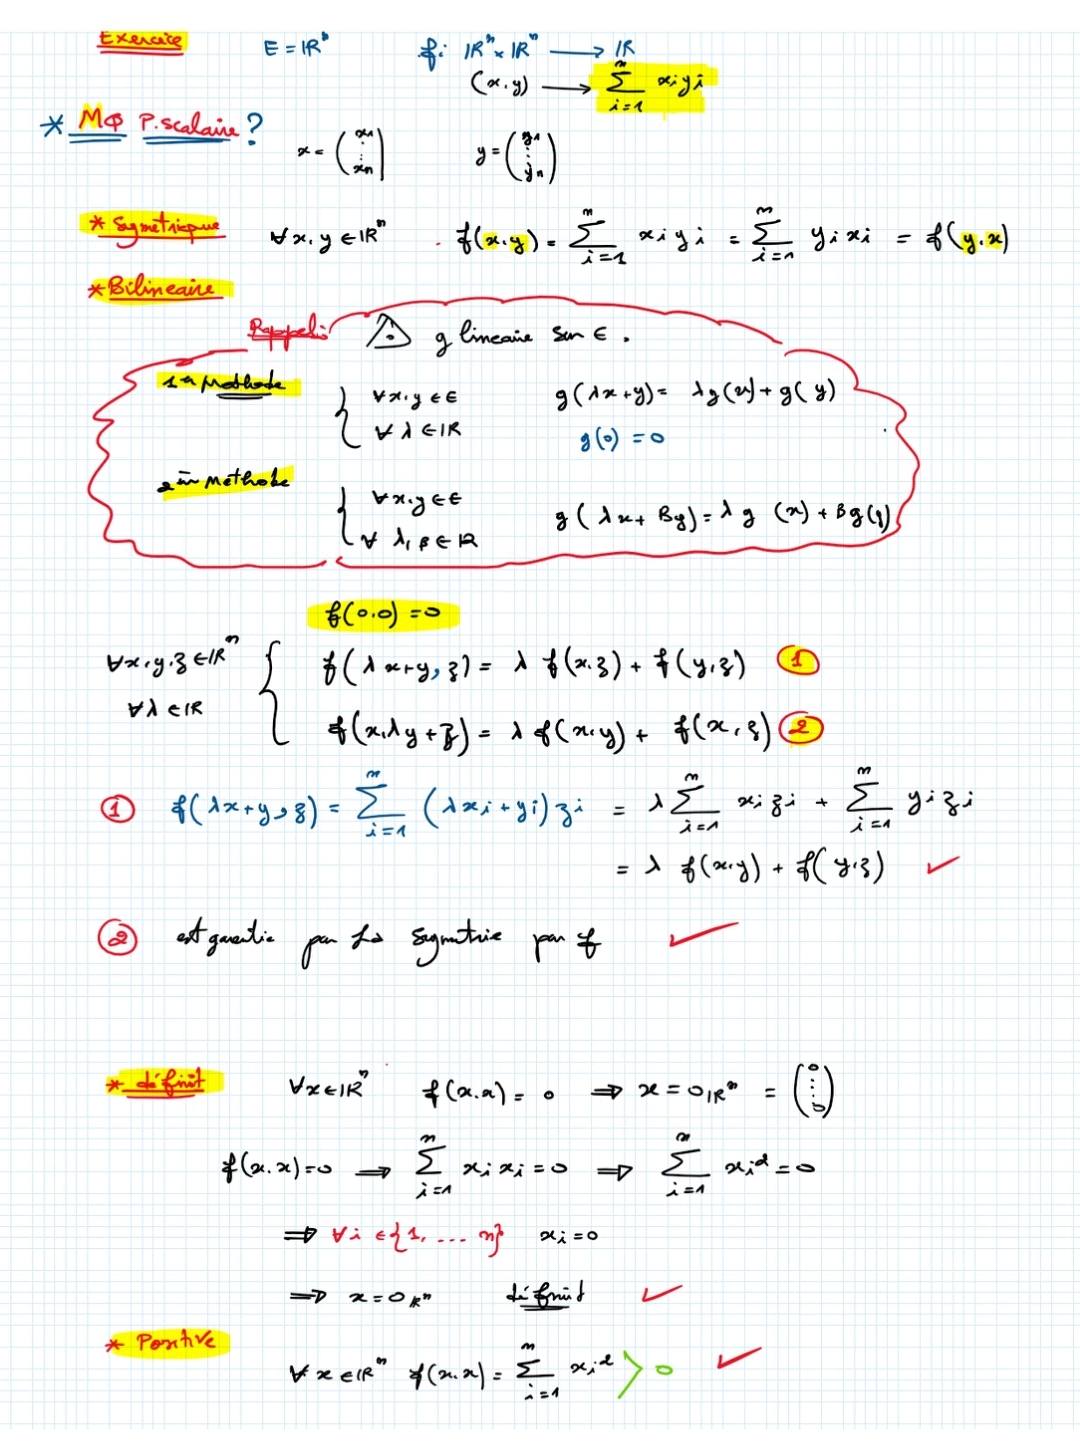 Exercice E = ℝⁿ f: ℝⁿ × ℝⁿ ⟶ ℝ
(x,y) ⟶ Σ_{i=1}^{n} xᵢyᵢ
* Mφ P.scalaire ?
x = (x₁ ⋮ xₙ) y = (y₁ ⋮ yₙ)
* Symetrique ∀x,y ∈ ℝⁿ f(x,y) = Σ_{i=1}^{n} xᵢyᵢ = Σ_{i=1}^{n} yᵢxᵢ = f(y,x)
* Bilineaire
Rappel: ⚠ g lineaire sur E.
1ère Methode { ∀x,y ∈ E g(λx+y) = λg(x) + g(y)
∀λ ∈ ℝ g(0) = 0
2èm Methode { ∀x,y ∈ E
∀ λ, β ∈ ℝ g(λx + By) = λ g(x) + B g(y)
f(0,0) = 0
∀x,y,z ∈ ℝⁿ { f(λx+y, z) = λ f(x,z) + f(y,z) ①
∀λ ∈ ℝ f(x,λy+z) = λ f(x,y) + f(x,z) ②
① f(λx+y,z) = Σ_{i=1}^{n} (λxᵢ+yᵢ)zᵢ = λ Σ_{i=1}^{n} xᵢzᵢ + Σ_{i=1}^{n} yᵢzᵢ
= λ f(x,y) + f(y,z) ✓
② est garentie par la Symetrie par f ✓
* définit ∀x ∈ ℝⁿ f(x,x) = 0 ⟹ x = 0_ℝⁿ = (0 ⋮ 0)
f(x,x) = 0 ⟹ Σ_{i=1}^{n} xᵢxᵢ = 0 ⟹ Σ_{i=1}^{n} xᵢ² = 0
⟹ ∀i ∈ {1, ... n} xᵢ = 0
⟹ x = 0_ℝⁿ définit ✓
* Positive
∀x ∈ ℝⁿ f(x,x) = Σ_{i=1}^{n} xᵢ² > 0 ✓